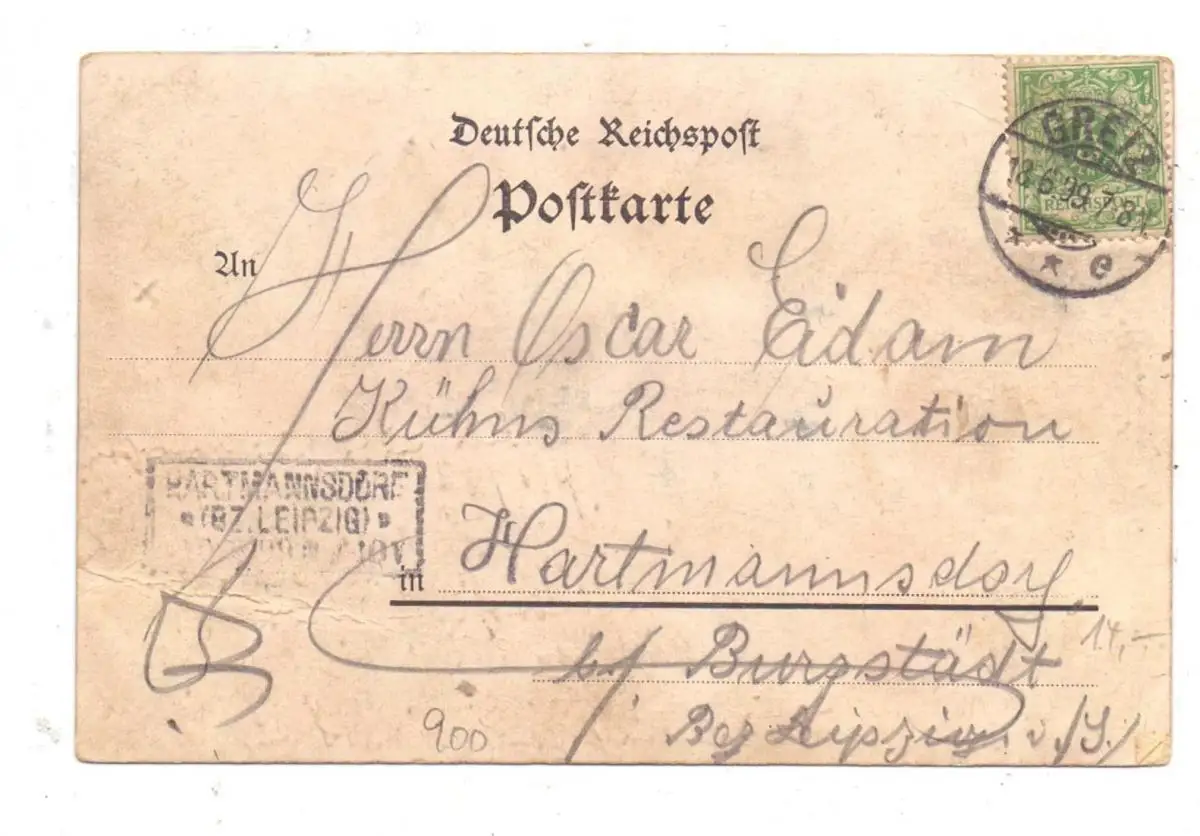 Deutsche Reichspost
Postkarte
GREIZ
18.6.99.7-8V.
* * e *
REICHSPOST
An
Herrn Oscar Eidam
Kühns Restauration
HARTMANNSDORF
* (BZ. LEIPZIG) *
in Hartmannsdorf
b/ Burgstädt
14,-
Bez Leipzig i/S.
900